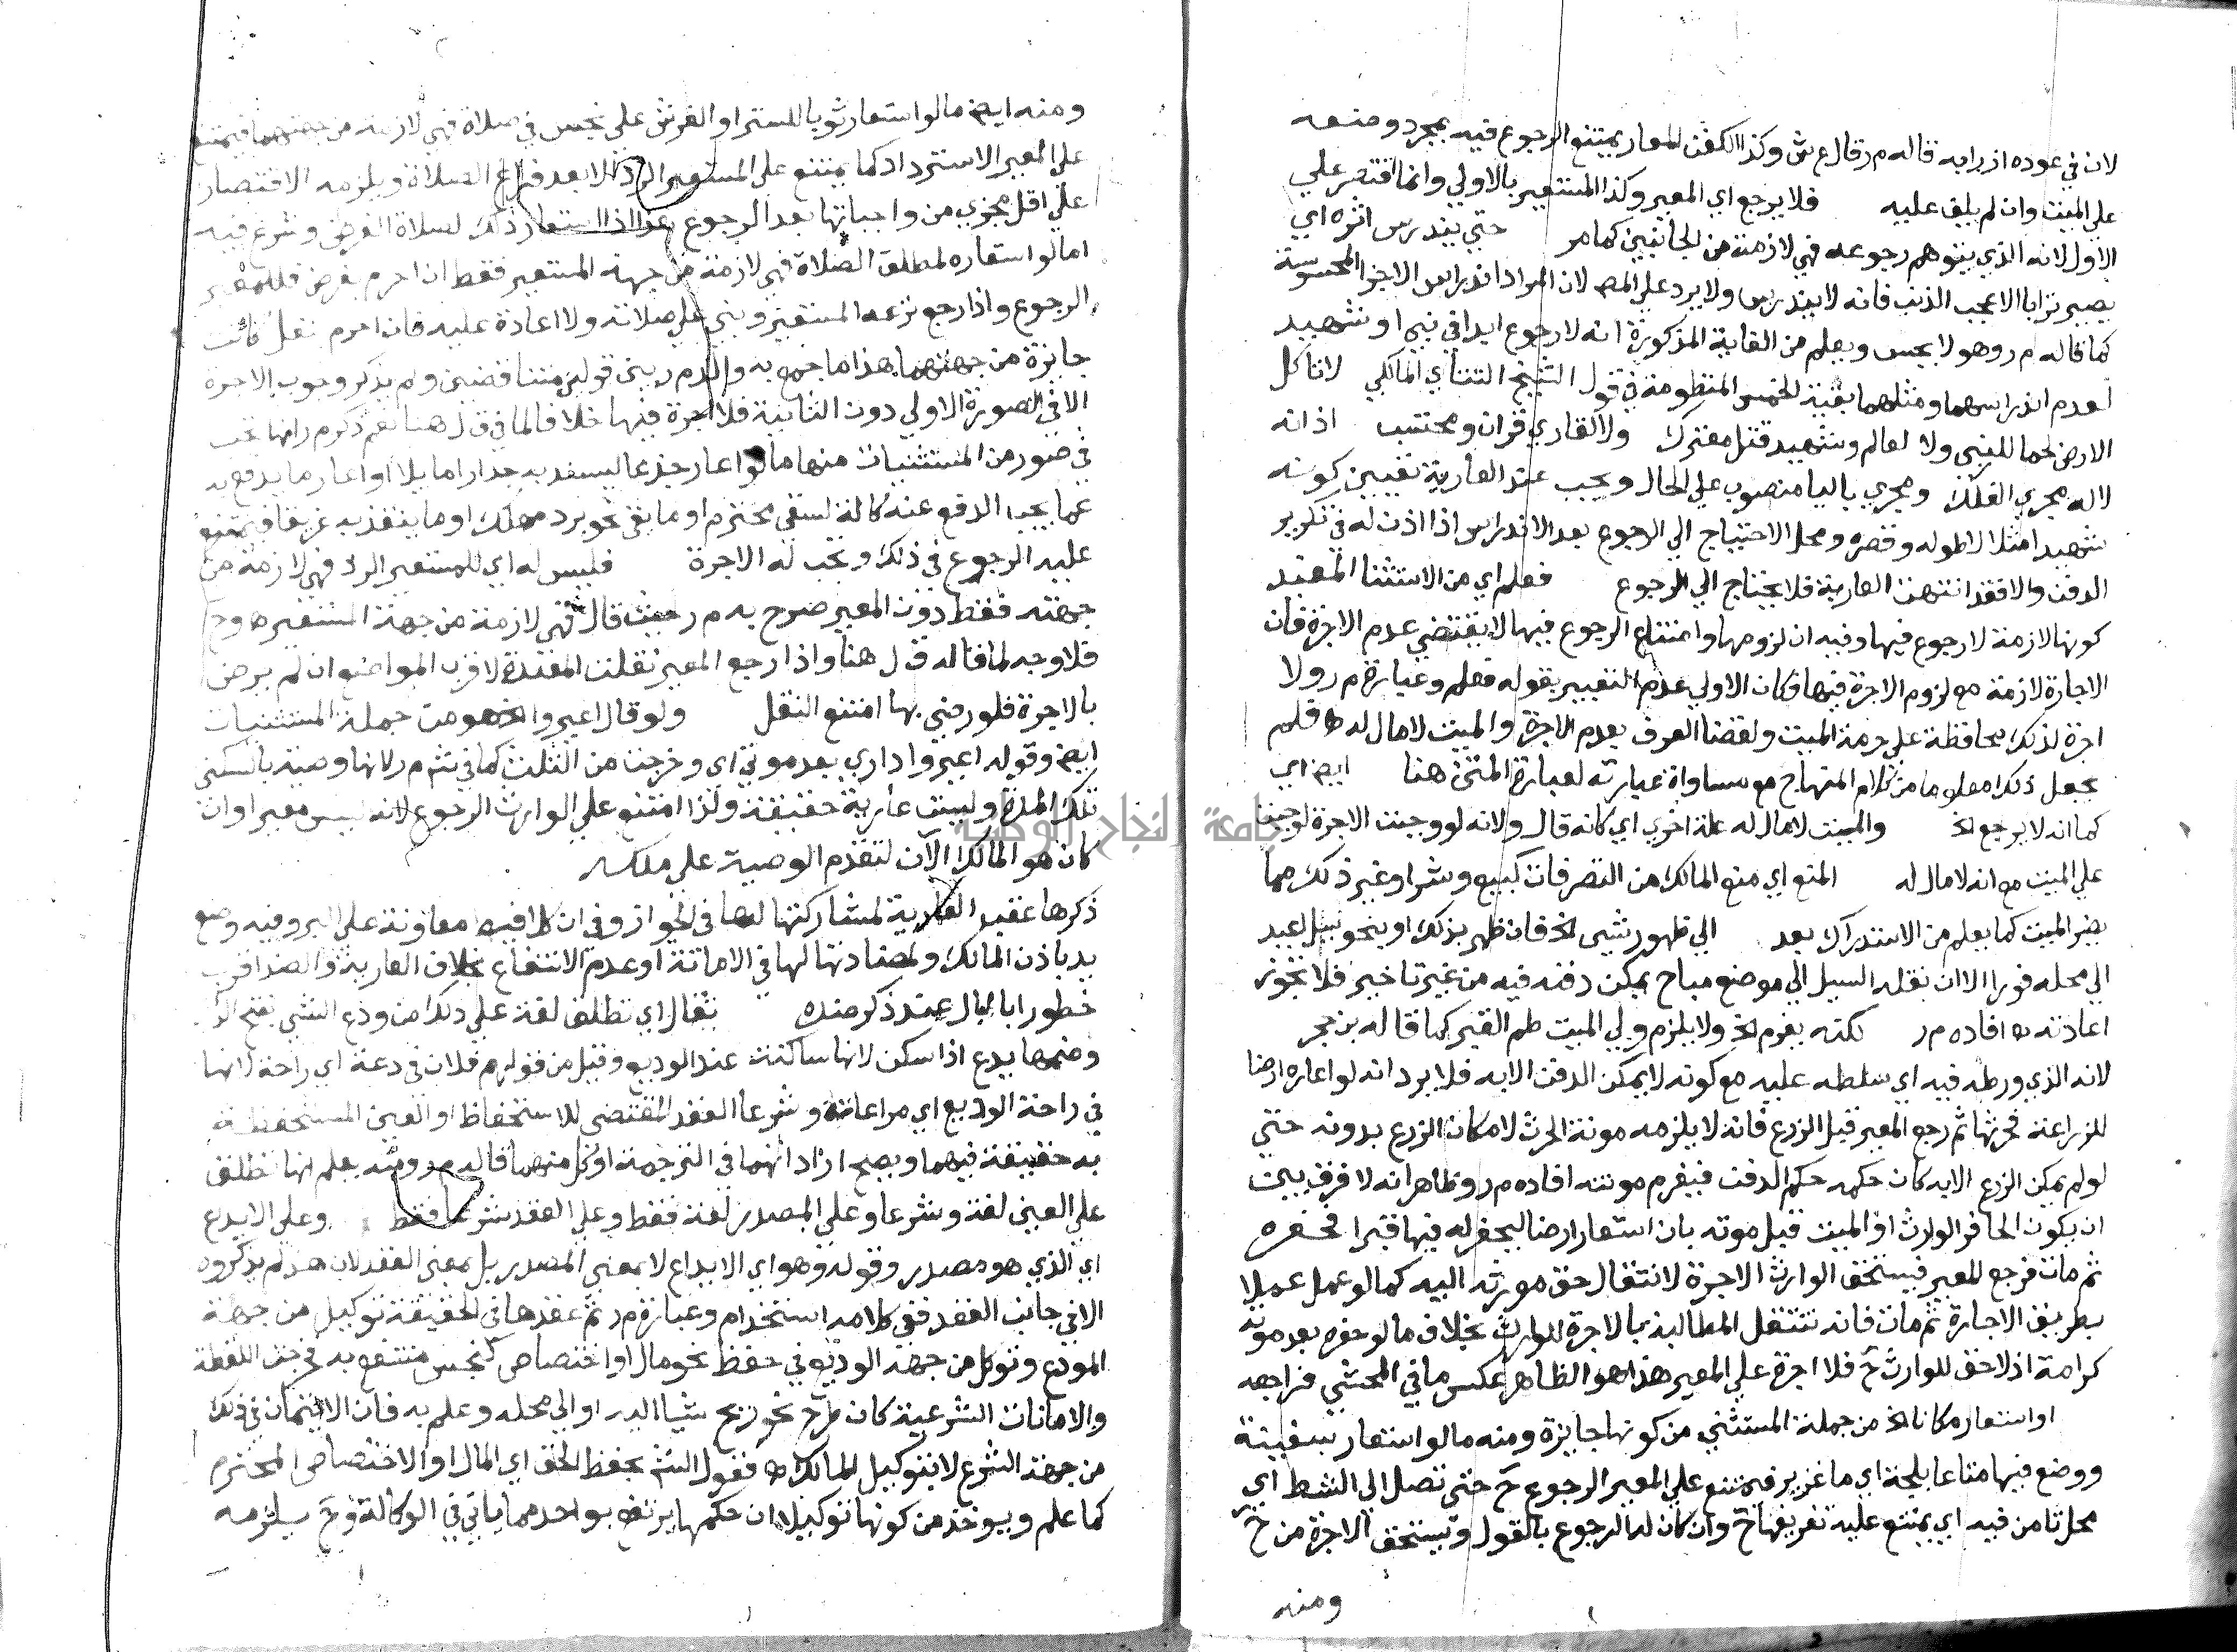 لان في عوده ازرا به قاله م ر قال ع ش وكذا الكفن المعار يمتنع الرجوع فيه بمجرد وضعه
علي الميت وان لم يلف عليه فلا يرجع اي المعير وكذا المستعير بالاولي وانما اقتصر علي
الاول لانه الذي يتوهم رجوعه فهي لازمة من الجانبين كمامر حتي يندرس اثره اي
يصير ترابا الا عجب الذنب فانه لا يندرس ولا يرد علي المصـ لان المراد اندراس الاجزا المحسوسة
كما قاله م ر وهو لا يحس ويعلم من الغاية المذكورة انه لا رجوع ابدا في نبي او شهيد
لعدم اندراسهما ومثلهما بقية الخمس المنظومة في قول الشيخ التتأي المالكي لا تاكل
الارض لحما للنبي ولا لعالم وشهيد قتل معترك ولا لقاري قران ومحتسب اذانه
لاله مجري الفلك ومجري باليا منصوب علي الحال ويجب عند العارية تعيين كونه
شهيدا مثلا لا طوله وقصره ومحل الاحتياج الي الرجوع بعد الاندراس اذا اذن له في تكرير
الدفن والا فقد انتهت العارية فلا يحتاج الي الرجوع فعلم اي من الاستثنا المفيد
كونها لازمة لا رجوع فيها وفيه ان لزومها وامتناع الرجوع فيها لا يقتضي عدم الاجرة فان
الاجارة لازمة مع لزوم الاجرة فيها فكان الاولي عدم التعبير بقوله فعلم وعبارة م ر ولا
اجرة لذلك محافظة علي حرمة الميت ولقضا العرف بعدم الاجرة والميت لا مال له اهـ فلم
يجعل ذلك معلوما من كلام المنهاج مع مساواة عبارته لعبارة المتن هنا ايضـ اي
كما انه لا يرجع الخ والميت لا مال له علة اخري اي كانه قال ولانه لو وجبت الاجرة لوجبت
علي الميت مع انه لا مال له المنع اي منع المالك من التصرفات كبيع وشرا وغير ذلك مما
يضر الميت كما يعلم من الاستدراك بعد الي ظهور شي الخ فان ظهر بذلك او بنحو سيل اعيد
الي محله فورا الا ان نقله السيل الي موضع مباح يمكن دفنه فيه من غير تاخير فلا تجوز
اعادته اهـ افاده م ر لكنه يغرم الخ ولا يلزم ولي الميت طم القبر كما قاله بن حجر
لانه الذي ورطه فيه اي سلطه عليه مع كونه لا يمكن الدفن الا به فلا يرد انه لو اعاره ارضا
للزراعة فحرثها ثم رجع المعير قبل الزرع فانه لا يلزمه مونة الحرث لامكان الزرع بدونه حتي
لو لم يمكن الزرع الا به كان حكمه حكم الدفن فيغرم مونته افاده م ر وظاهر انه لا فرق بين
ان يكون الحافر الوارث او الميت قبل موته بان استعار ارضا ليحفر له فيها قبرا فحفره
ثم مات فرجع المعير فيستحق الوارث الاجرة لانتقال حق مورثه اليه كما لو عمل عملا
بطريق الاجارة ثم مات فانه تنتقل المطالبة بالاجرة للوارث بخلاف ما لو حفره بعد موته
كرامة اذ لا حق للوارث ح فلا اجرة علي المعير هذا هو الظاهر عكس ما في المحشي فراجعه
او استعار مكانا الخ من جملة المستثني من كونها جايزة ومنه ما لو استعار سفينة
ووضع فيها متاعا بلجة اي ما غزير فيمتنع علي المعير الرجوع ح حتي تصل الي الشط اي
محل تامن فيه اي يمتنع عليه تفريغها ح وان كان له الرجوع بالقول ويستحق الاجرة من ح
ومنه
ومنه ايضـ ما لو استعار ثوبا للستر او الفرش علي نجس في صلاة فهي لازمة من جهتهما فيمتنع
علي المعير الاسترداد كما يمتنع علي المستعير الرد الا بعد فراغ الصلاة ويلزمه الاقتصار
علي اقل مجزي من واجباتها بعد الرجوع هذا اذا استعار ذلك لصلاة الفرض وشرع فيه
اما لو استعاره لمطلق الصلاة فهي لازمة من جهة المستعير فقط ان احرم بفرض فللمعير
الرجوع واذا رجع نزعه المستعير وبني علي صلاته ولا اعادة عليه فان احرم بنفل كانت
جايزة من جهتهما هذا ما جمع به والد م ر بين قولين متناقضين ولم يذكر وجوب الاجرة
الا في الصورة الاولي دون الثانية فلا اجرة فيها خلافا لما في ق ل هنا نعم ذكر م ر انها تجب
في صور من المستثنيات منها ما لو اعار جذعا ليسند به جدارا مايلا او اعار ما يدفع به
عما يجب الدفع عنه كالة لسقي محترم او ما يقي نحو برد مهلك او ما ينقذ به غريقا فيمتنع
عليه الرجوع في ذلك وتجب له الاجرة فليس له اي للمستعير الرد فهي لازمة من
جهته فقط دون المعير صرح به م ر حيث قال فهي لازمة من جهة المستعير اهـ وح
فلا وجه لما قاله ق ل هنا واذا رجع المعير نقلت المعتدة لاقرب المواضع ان لم يرض
بالاجرة فلو رضي بها امتنع النقل ولو قال اعيروا الخ هو من جملة المستثنيات
ايضـ وقوله اعيروا داري بعد موتي اي وخرجت من الثلث كما في شـ م ر لانها وصية بالسكني
تلك المدة وليست عارية حقيقة ولذا امتنع علي الوارث الرجوع لانه ليس معيرا وان
كان هو المالك الآن لتقدم الوصية علي ملكه
ذكرها عقيب العارية لمشاركتها لها في الجواز وفي ان كلا فيه معاونة علي البر وفيه وضع
يد باذن المالك ولمضادتها لها في الامانة او عدم الانتفاع بخلاف العارية والضد اقرب
خطورا بالبال عند ذكر ضده تقال اي تطلق لغة علي ذلك من ودع الشي بفتح الد
وضمها يدع اذا سكن لانها ساكنة عند الوديع وقيل من قولهم فلان في دعة اي راحة لانها
في راحة الوديع اي مراعاته وشرعا العقد المقتضي للاستحفاظ او العين المستحفظة
به حقيقة فيهما ويصح ارادتهما في الترجمة او كل منهما قاله م ر ومنه يعلم انها تطلق
علي العين لغة وشرعا وعلي المصدر لغة فقط وعلي العقد شرعا فقط وعلي الايداع
اي الذي هو مصدر وقوله وهو اي الايداع لا بمعني المصدر بل بمعني العقد لانهم لم يذكروه
الا في جانب العقد ففي كلامه استخدام وعبارة م ر ثم عقدها في الحقيقة توكيل من جهة
المودع وتوكل من جهة الوديع في حفظ نحو مال او اختصاص كنجس منتفع به فخرجت اللقطة
والامانات الشرعية كان طرح نحو ريح شيا اليه او الي محله وعلم به فان الايتمان في ذلك
من جهة الشرع لا بتوكيل المالك اهـ فقول الشـ بحفظ الحق اي المال او الاختصاص المحترم
كما علم ويوخذ من كونها توكيلا ان حكمها يرتفع بواحد مما ياتي في الوكالة وح يلزمه